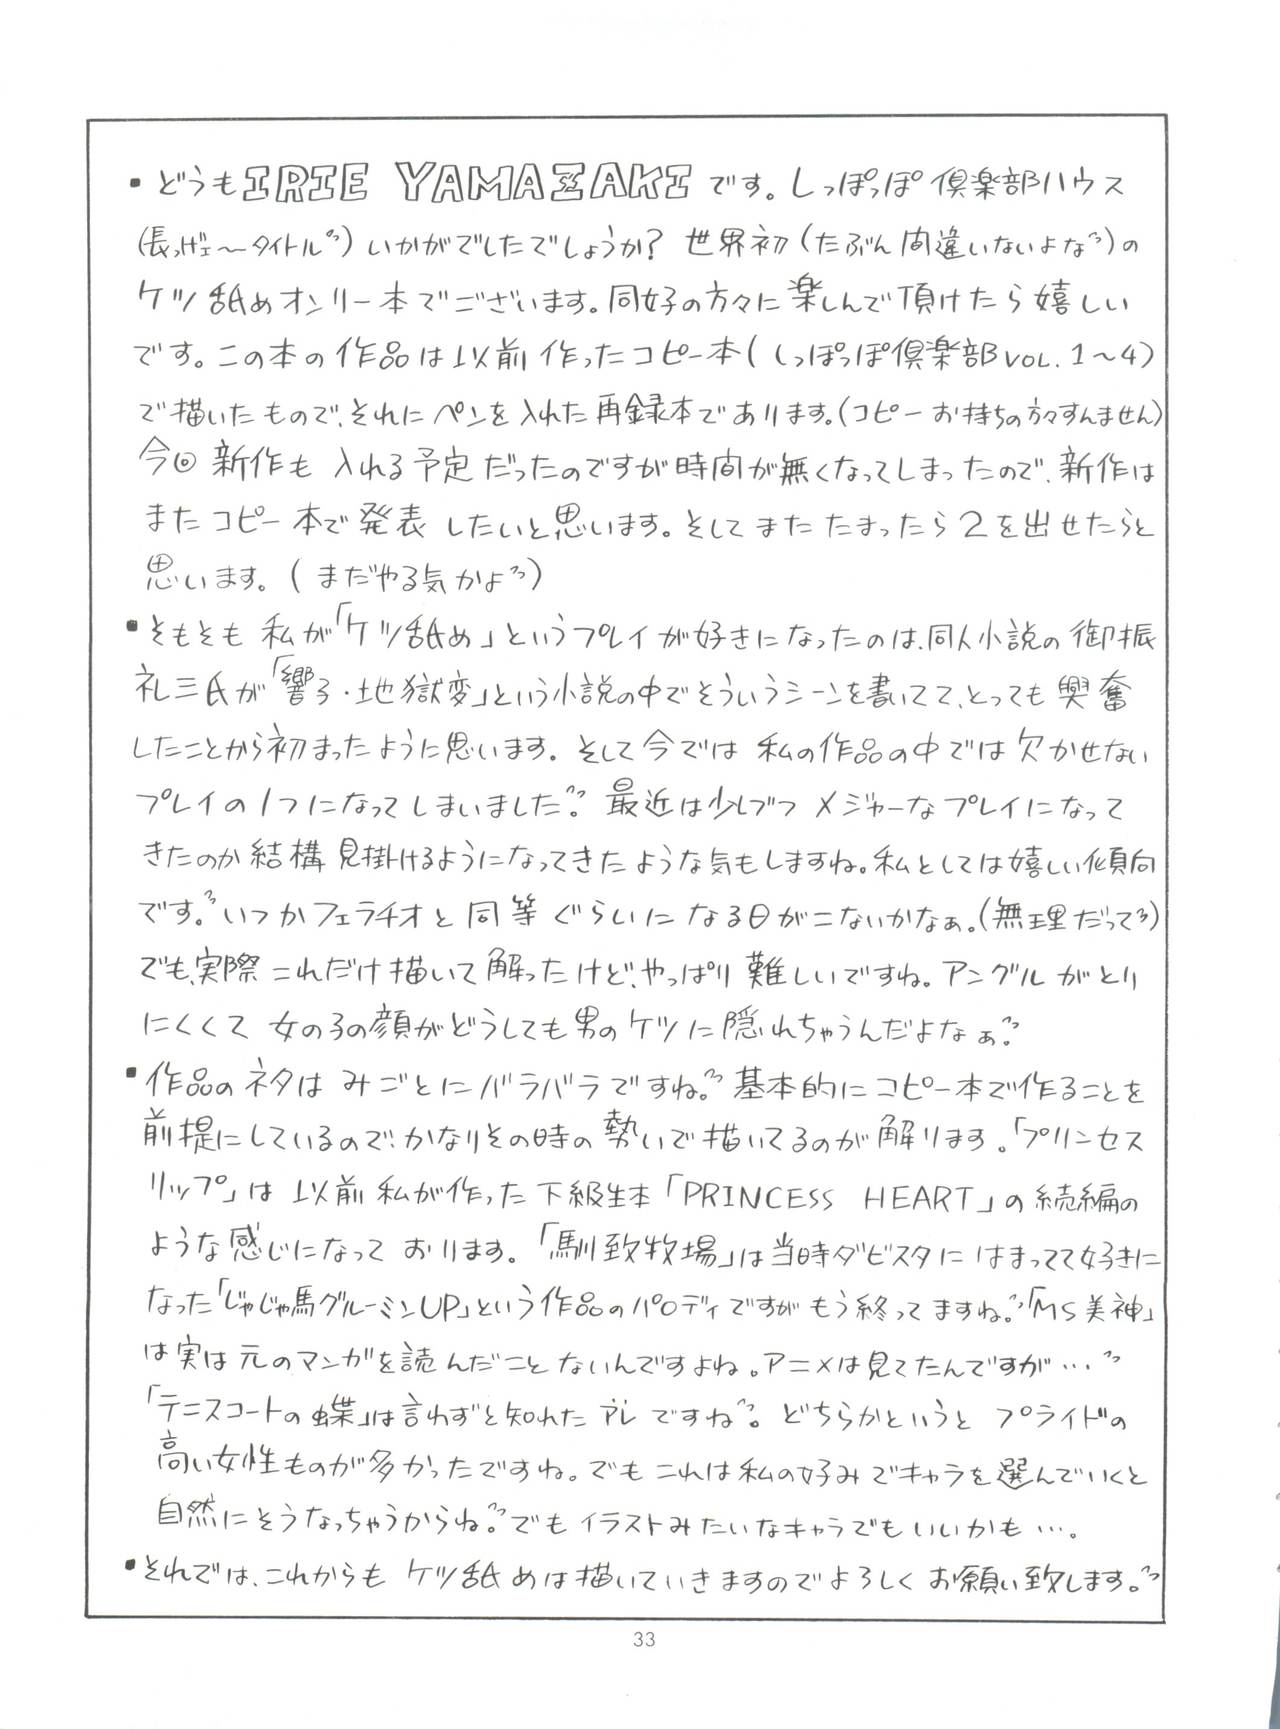 ・どうもIRIE YAMAZAKIです。しっぽっぽ倶楽部ハウス
(長っげェ〜タイトル゛)いかがでしたでしょうか? 世界初(たぶん間違いないよな゛)の
ケツ舐めオンリー本でございます。同好の方々に楽しんで頂けたら嬉しい
です。この本の作品は以前作ったコピー本(しっぽっぽ倶楽部VOL.1〜4)
で描いたもので、それにペンを入れた再録本であります。(コピーお持ちの方々すんません)
今回新作も入れる予定だったのですが時間が無くなってしまったので、新作は
またコピー本で発表したいと思います。そしてまたたまったら2を出せたらと
思います。(まだやる気かよ゛)
・そもそも私が「ケツ舐め」というプレイが好きになったのは、同人小説の御振
礼三氏が「響子・地獄変」という小説の中でそういうシーンを書いてて、とっても興奮
したことから初まったように思います。そして今では私の作品の中では欠かせない
プレイの1つになってしまいました゛。最近は少しづつメジャーなプレイになって
きたのか結構見掛けるようになってきたような気もしますね。私としては嬉しい傾向
です。゛いつかフェラチオと同等ぐらいになる日がこないかなぁ。(無理だって゛)
でも、実際これだけ描いて解ったけど、やっぱり難しいですね。アングルがとり
にくくて女の子の顔がどうしても男のケツに隠れちゃうんだよなぁ゛。
・作品のネタはみごとにバラバラですね。゛基本的にコピー本で作ることを
前提にしているので、かなりその時の勢いで描いてるのが解ります。「プリンセス
リップ」は以前私が作った下級生本「PRINCESS HEART」の続編の
ような感じになっております。「馴致牧場」は当時ダビスタにはまってて好きに
なった「じゃじゃ馬グルーミンUP」という作品のパロディですがもう終ってますね。゛「MS美神」
は実は元のマンガを読んだことないんですよね。アニメは見てたんですが…゛
「テニスコートの蝶」は言わずと知れたアレですね゛。どちらかというとプライドの
高い女性ものが多かったですね。でもこれは私の好みでキャラを選んでいくと
自然にそうなっちゃうからね。゛でもイラストみたいなキャラでもいいかも…。
・それでは、これからもケツ舐めは描いていきますのでよろしくお願い致します。゛
33